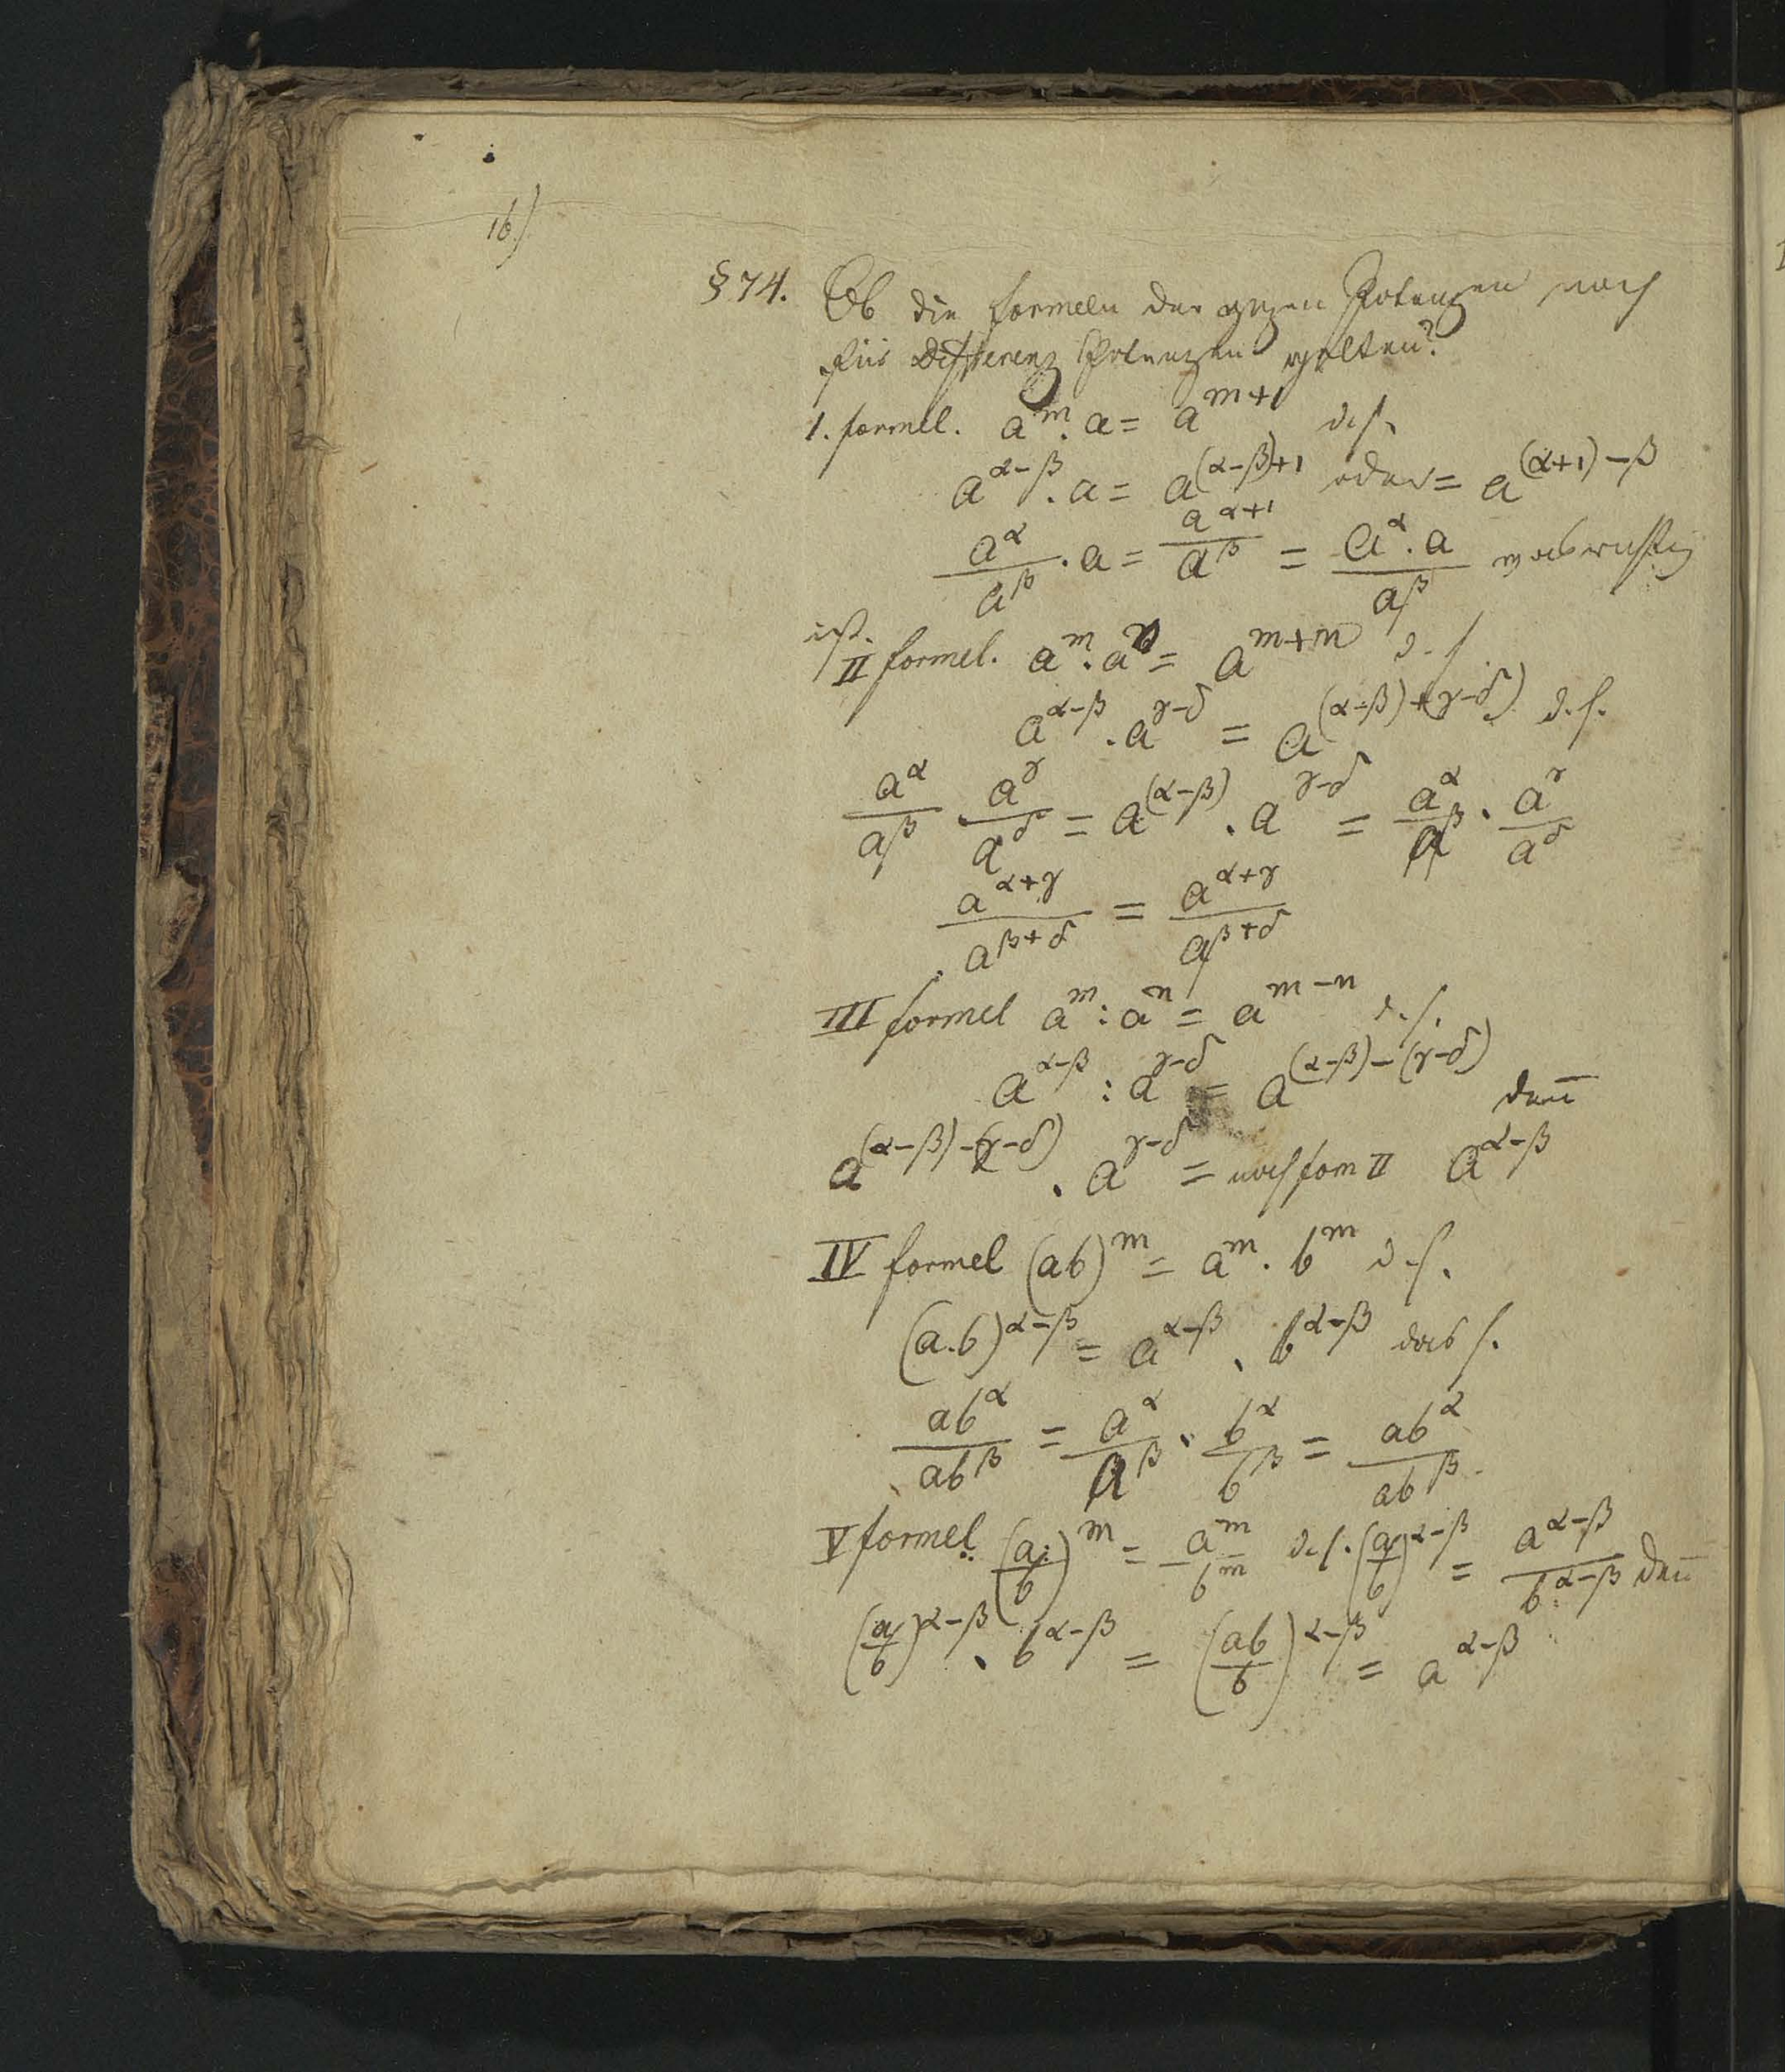 16.)
§ 74. Ob die formeln der ganzen Potenzen noch
für Differenz Potenzen gelten?
1. formel. a^m . a = a^{m+1} d.h.
a^{α-β} . a = a^{(α-β)+1} oder = a^{(α+1)-β}
\frac{a^α}{a^β} . a = \frac{a^{α+1}}{a^β} = \frac{a^α . a}{a^β} richtig
ist.
II formel. a^m . a^n = a^{m+n} d.h.
a^{α-β} . a^{γ-δ} = a^{(α-β)+(γ-δ)} d.h.
\frac{a^α}{a^β} . \frac{a^γ}{a^δ} = a^{(α-β)} . a^{γ-δ} = \frac{a^α}{a^β} . \frac{a^γ}{a^δ}
\frac{a^{α+γ}}{a^{β+δ}} = \frac{a^{α+γ}}{a^{β+δ}}
III formel a^m : a^n = a^{m-n} d.h.
a^{α-β} : a^{γ-δ} = a^{(α-β)-(γ-δ)} den̄
a^{(α-β)-(γ-δ)} . a^{γ-δ} = nach fom II a^{α-β}
IV formel (ab)^m = a^m . b^m d.h.
(a.b)^{α-β} = a^{α-β} . b^{α-β} das h.
\frac{ab^α}{ab^β} = \frac{a^α}{a^β} . \frac{b^α}{b^β} = \frac{ab^α}{ab^β}
V formel (\frac{a}{b})^m = \frac{a^m}{b^m} d.h. (\frac{a}{b})^{α-β} = \frac{a^{α-β}}{b^{α-β}} den̄
(\frac{a}{b})^{α-β} . b^{α-β} = (\frac{ab}{b})^{α-β} = a^{α-β}